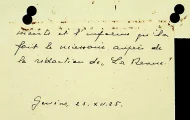 mérite et l'informe qu'il
fait le nécessaire auprès de
la rédaction de "La Revue"!
Genève 21.XII.25.